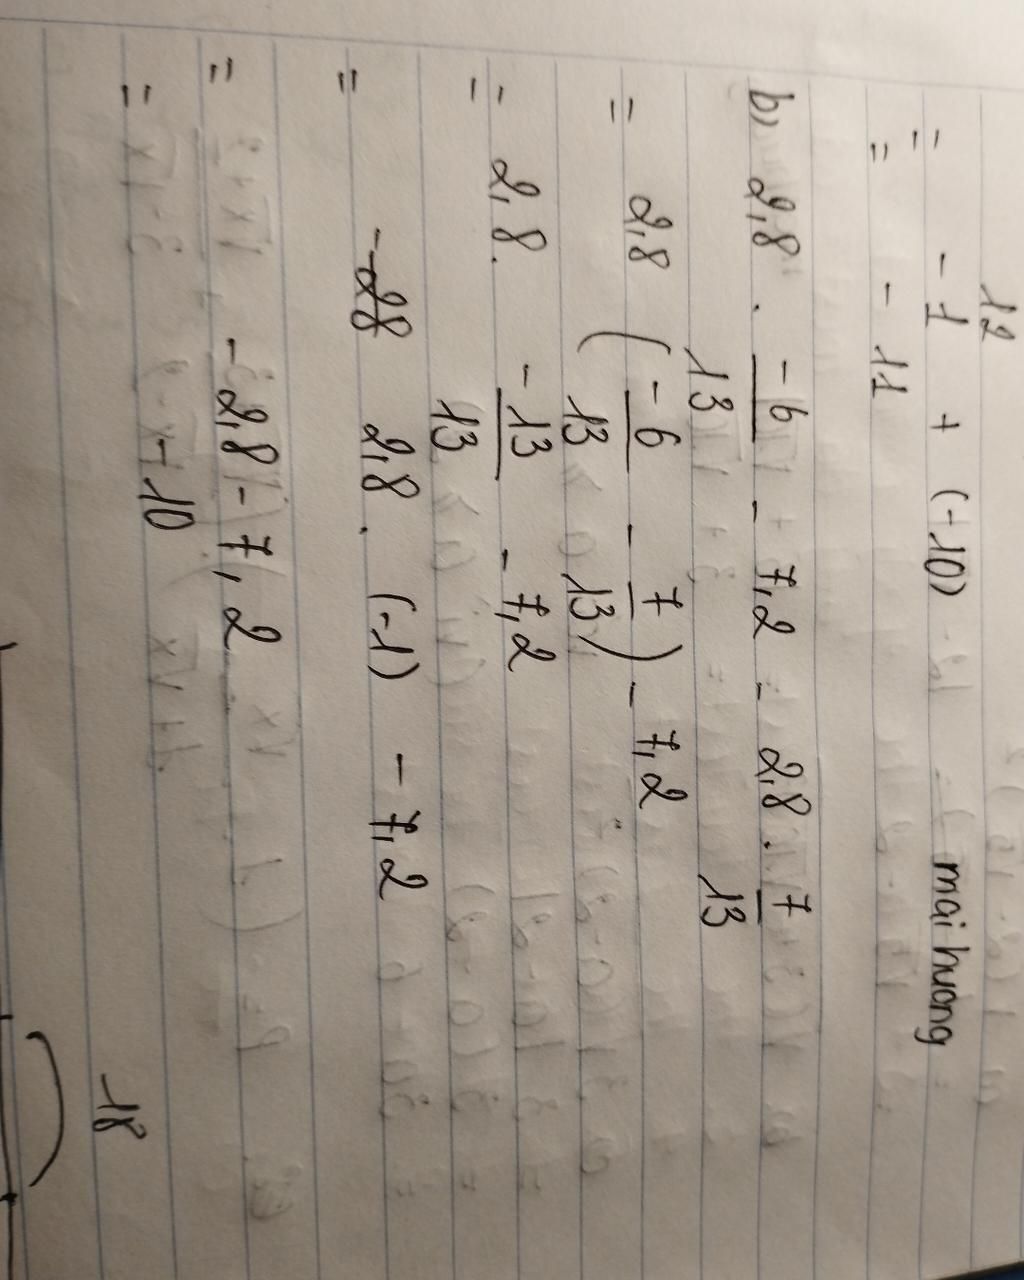 12
= - 1 + (-10) mai huong
= - 11
b) 2,8 . -6/13 - 7,2 - 2,8 . 7/13
= 2,8 (-6/13 - 7/13) - 7,2
= 2,8 . -13/13 - 7,2
= -28 2,8 . (-1) - 7,2
= -2,8 - 7,2
= -10
18